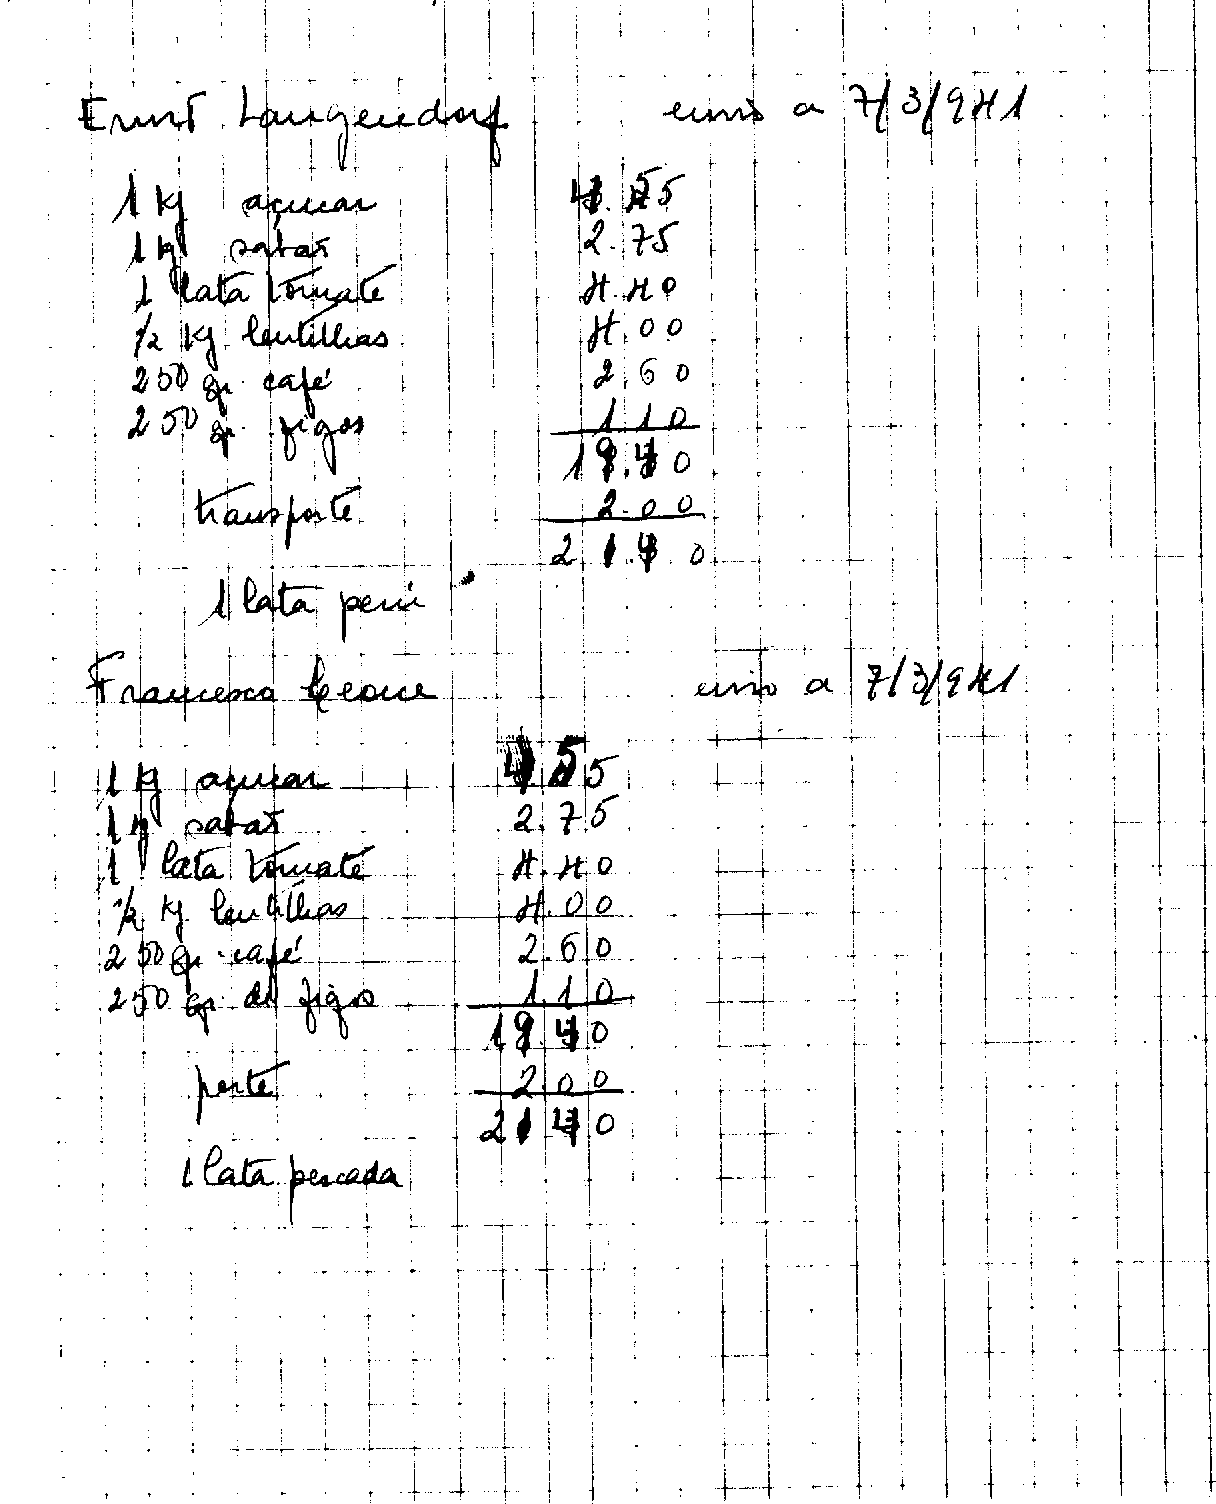 Ernst Langendorf envio a 7/3/941
1 kg açucar 4.55
1 kg sabão 2.75
1 lata tomate 4.40
1/2 kg. lentilhas 4.00
250 gr. café 2.60
250 gr. figos 1.10
19.40
transporte 2.00
21.40
1 lata perú
Francesco Leone envio a 7/3/941
1 kg açucar 4.55
1 kg sabão 2.75
1 lata tomate 4.40
1/2 kg lentilhas 4.00
250 gr. café 2.60
250 gr. de figos 1.10
19.40
porte 2.00
21.40
1 lata pescada